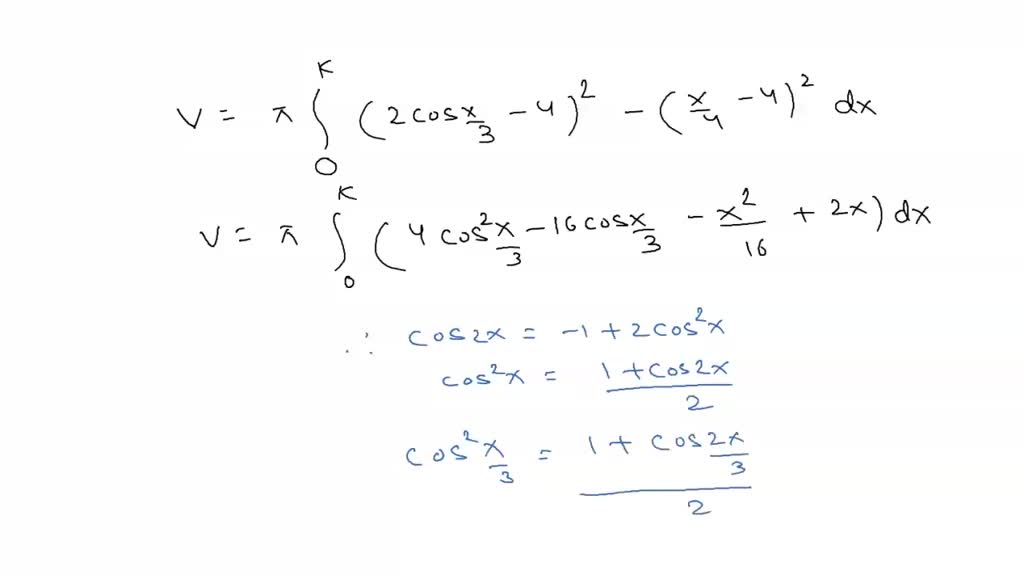 V = π ∫₀ᴷ (2cos x/3 - 4)² - (x/4 - 4)² dx
V = π ∫₀ᴷ (4cos² x/3 - 16cos x/3 - x²/16 + 2x) dx
∴ cos2x = -1 + 2cos²x
cos²x = (1 + cos2x)/2
cos² x/3 = (1 + cos 2x/3)/2